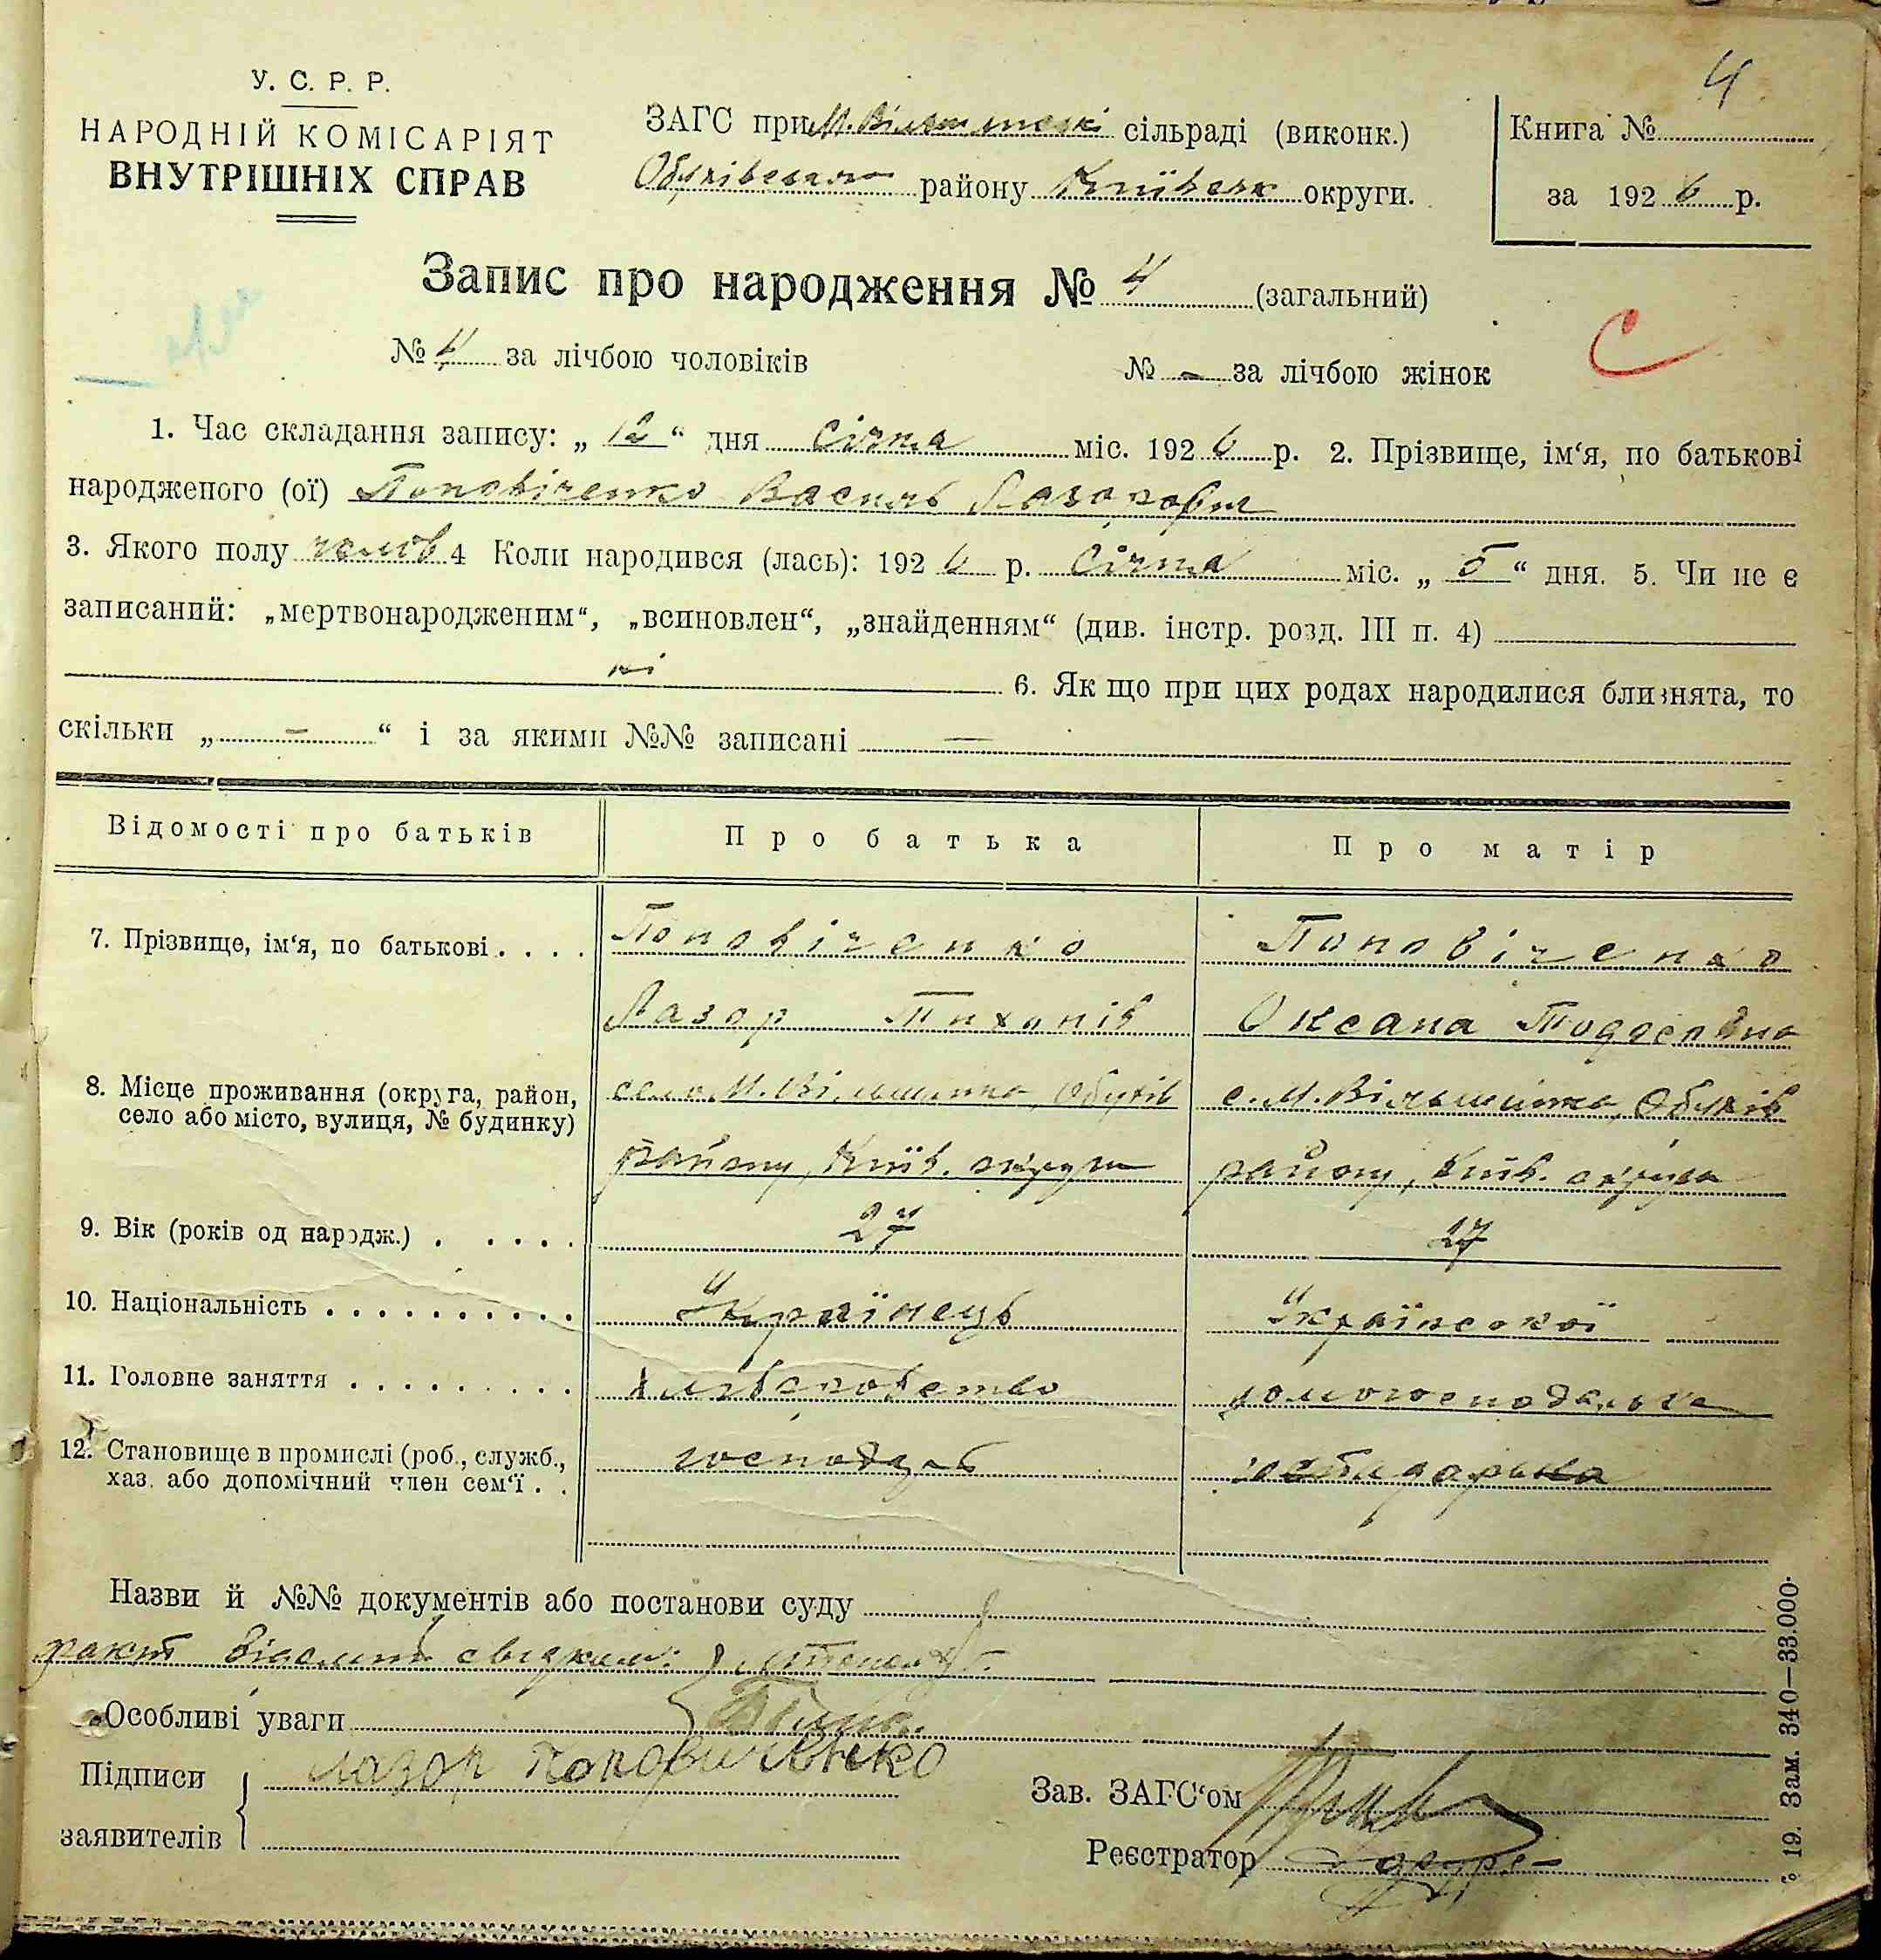 4
У. С. Р. Р.
НАРОДНІЙ КОМІСАРІЯТ
ВНУТРІШНІХ СПРАВ
ЗАГС при М. Вільшанскі сільраді (виконк.)
Обухівського району Київськ округи.
Книга №
за 1926 р.
Запис про народження № 4 (загальний)
№ 4 за лічбою чоловіків № - за лічбою жінок
С
1. Час складання запису: „ 12 “ дня Січня міс. 1926 р. 2. Прізвище, ім‘я, по батькові
народженого (ої) Поповіченко Василь Лазорович
3. Якого полу чолов 4 Коли народився (лась): 1926 р. Січня міс. „ 5 “ дня. 5. Чи не є
записаний: „мертвонародженим“, „всиновлен“, „знайденням“ (див. інстр. розд. III п. 4)
ні 6. Як що при цих родах народилися близнята, то
скільки „ – “ і за якими №№ записані —
Відомості про батьків Про батька Про матір
7. Прізвище, ім‘я, по батькові . . . . Поповіченко Поповіченко
Лазор Тихонів Оксана Тодосівна
8. Місце проживання (округа, район, село М. Вільшанка, Обухів с. М. Вільшанка, Обухів
село або місто, вулиця, № будинку)
району, Київ. округи району, Київ. округи
9. Вік (років од народж.) . . . . . 27 27
10. Національність . . . . . . . . . . Українець Української
11. Головне заняття . . . . . . . . . хліборобство домогосподарька
12. Становище в промислі (роб., служб., господарь господарька
хаз. або допомічний член сем‘ї . .
Назви й №№ документів або постанови суду
факт відомий свидкам:
Особливі уваги
Підписи лазор поповиченко
заявителів
Зав. ЗАГС‘ом
Реєстратор
19. Зам. 340—33.000.